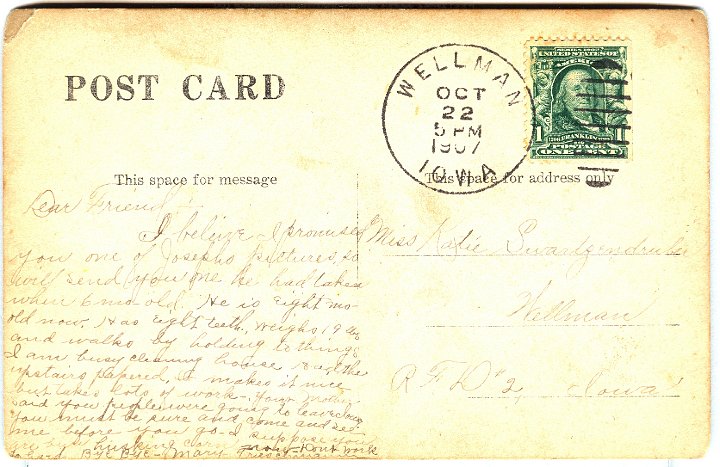 POST CARD
WELLMAN
OCT
22
5 PM
1907
IOWA
SERIES 1902
UNITED STATES OF
AMERICA
1 FRANKLIN 1
POSTAGE
ONE CENT
This space for message
This space for address only
Dear Friend
I believe I promised
you one of Josephs pictures, so
will send you one he had taken
when 6 mo old. He is eight mo
old now. Has eight teeth. Weighs 19 lbs
and walks by holding to things
I am busy cleaning house had the
upstairs papered, it makes it nice
but takes lots of work. Your
said you people were going to leave
You must be sure and come and see
me before you go. I suppose you
husking corn now work
Bye Bye Mary
Miss Katie Swartzendruber
Wellman
R F D #2, Iowa